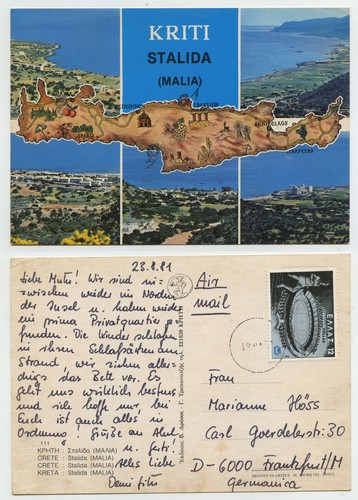 KRITI
STALIDA
(MALIA)
23.8.81
Liebe Mutti! Wir sind in-
zwischen wieder im Norden
der Insel u. haben wieder
ein prima Privatquartier ge-
funden. Die Kinder schlafen
in ihren Schlafsäcken am
Strand, wir ziehen aller-
dings das Bett vor. Es
geht uns wirklich bestens
und ich hoffe nur, bei
Euch ist auch alles in
Ordnung! Grüße an
u.
Alles Liebe
111
ΚΡΗΤΗ : Σταλίδα (ΜΑΛΙΑ)
CRETE : Stalida (MALIA)
CRETE : Stalida (MALIA)
KRETA : Stalida (MALIA)
Air
mail
ΕΛΛΑΣ 12
Frau
Marianne Höss
Carl Goerdelerstr. 30
D-6000 Frankfurt/M
Germanica